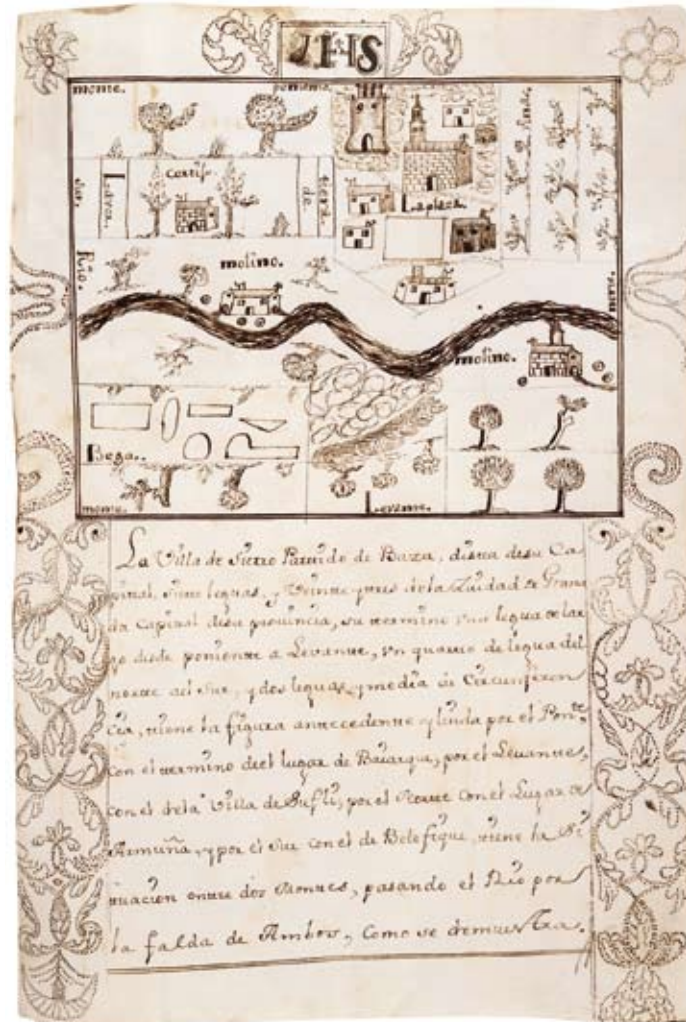 JHS
monte.
poniente.
Laplaza.
Rio.
molino.
molino.
Bega.
monte.
Levante.
La Villa de Sierro Partido de Baza, dista desu Ca
pital, siete leguas, y Veinte ytres dela Ziudad de Grana
da Capital desu provincia, su termino una legua de lar
go desde poniente a Levante, vn quarto de legua del
norte al Sur, y dos leguas, y media de Circunferen
cia, tiene la figura antecedente y linda por el Ponte
con el termino deel lugar de Baiarque, por el Levante,
con el dela Villa de Sufli, por el Norte con el Lugar de
Armuña, y por el Sur con el de Belefique, tiene la Si
tuacion entre dos Montes, pasando el Rio por
la falda de Ambos, Como se demuestra.